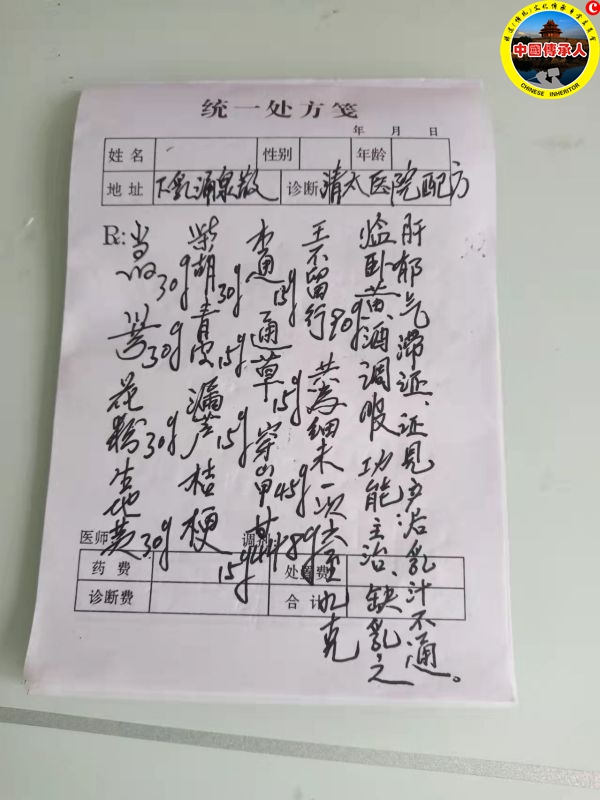 中國傳承人
CHINESE INHERITOR
C
统一处方笺
年 月 日
姓名 性别 年龄
地址 下乳涌泉散 诊断 清太医院配方
R:
当归30g 川芎30g 花粉30g 生地黄30g
柴胡30g 青皮15g 漏芦15g 桔梗15g
木通15g 通草15g 穿山甲45g 甘草
王不留行90g 共为细末一次六至九克
临卧黄酒调服 功能主治、缺乳之
肝郁气滞证、证见产后乳汁不通。
医师
药费
诊断费 合计